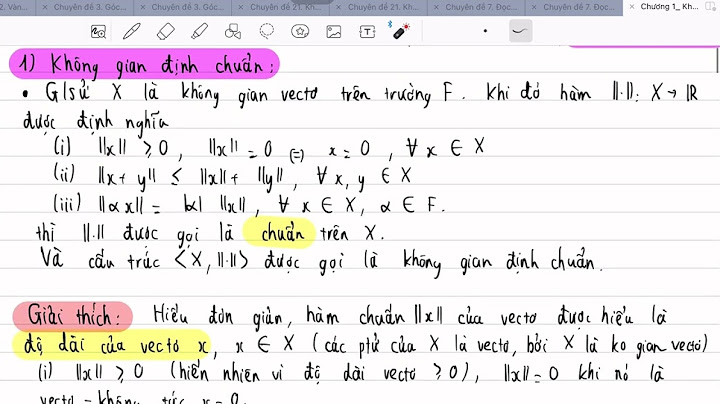 2. Vàn...
Chuyên đề 3. Góc...
Chuyên đề 3. Góc...
Chuyên đề 21. Kh...
Chuyên đề 21. Kh...
Chuyên đề 7. Đọc...
Chuyên đề 7. Đọc...
× Chương 1_ Kh...
1) Không gian định chuẩn:
• G/sử X là không gian vectơ trên trường F. Khi đó hàm ||.||: X → ℝ
được định nghĩa
(i) ||x|| ≥ 0, ||x|| = 0 (=) x = 0, ∀ x ∈ X
(ii) ||x + y|| ≤ ||x|| + ||y||, ∀ x, y ∈ X
(iii) ||αx|| = |α| ||x||, ∀ x ∈ X, α ∈ F.
thì ||.|| được gọi là chuẩn trên X.
Và cấu trúc <X, ||.||> được gọi là không gian định chuẩn.
Giải thích: Hiểu đơn giản, hàm chuẩn ||x|| của vectơ được hiểu là
độ dài của vectơ x, x ∈ X (các ptử của X là vectơ, bởi X là ko gian vectơ)
(i) ||x|| ≥ 0 (hiển nhiên vì độ dài vectơ ≥ 0), ||x|| = 0 khi nó là
vectơ - không, tức x = 0.